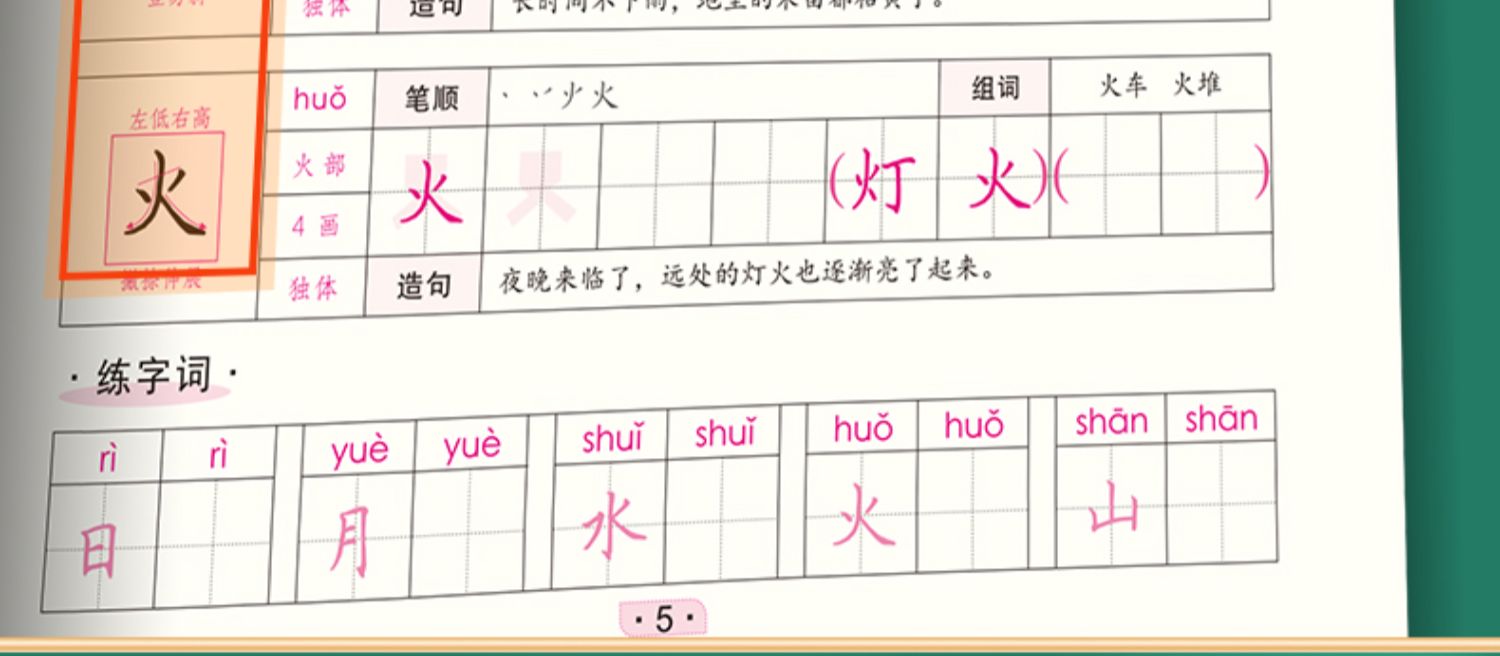 独体 造句
huǒ 笔顺 丶 丷 少 火 组词 火车 火堆
左低右高
火 火部 火 (灯 火)( )
4 画
撇捺伸展 独体 造句 夜晚来临了，远处的灯火也逐渐亮了起来。
·练字词·
rì rì yuè yuè shuǐ shuǐ huǒ huǒ shān shān
日 月 水 火 山
·5·